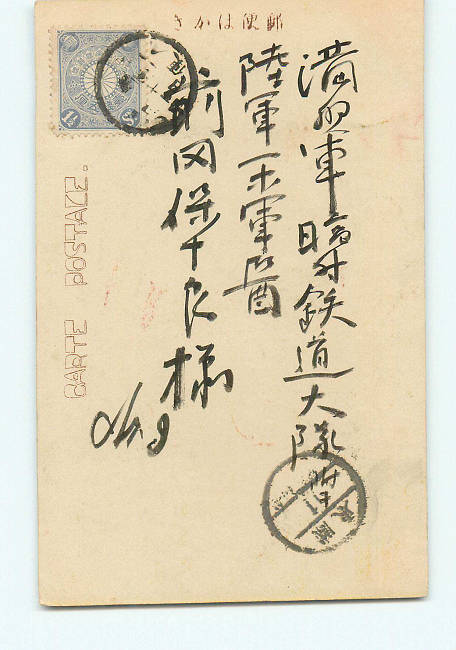 郵便はかき
満州軍臨時鉄道大隊附
陸軍一等軍醫
前岡保 良様
CARTE POSTALE.
1½